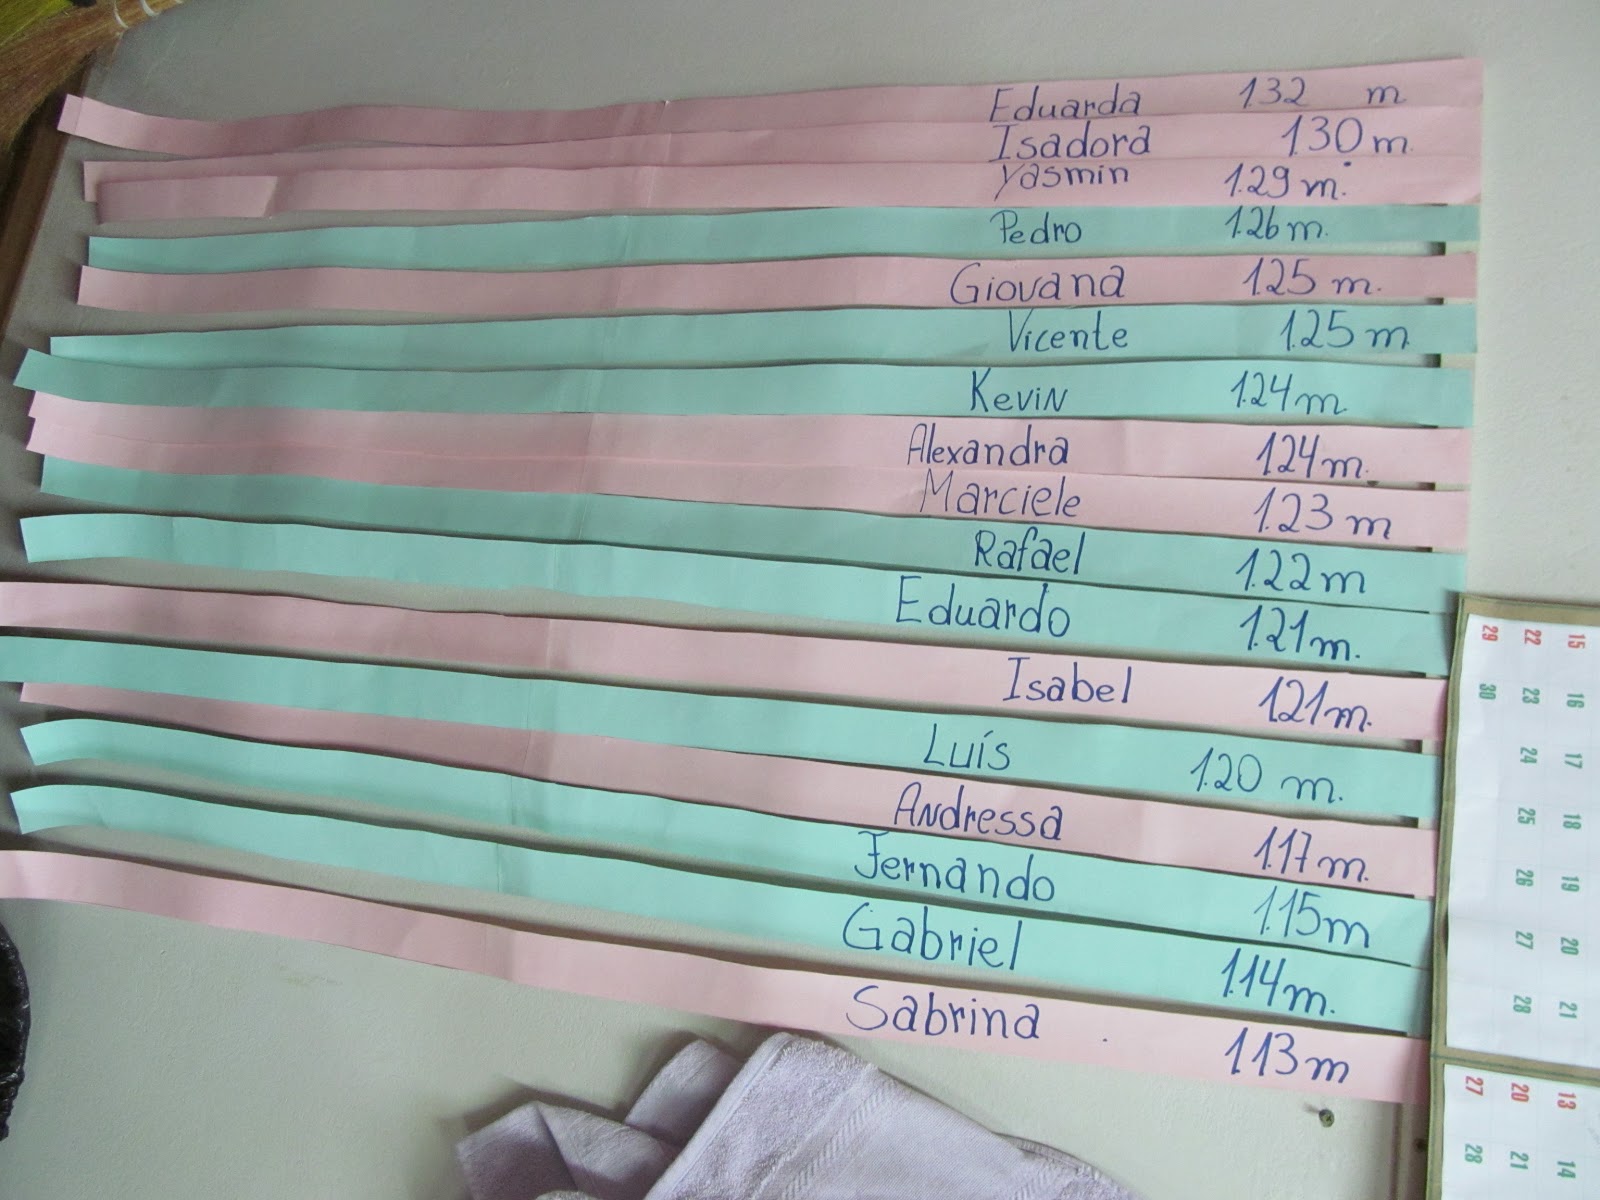 Eduarda 1.32 m
Isadora 1.30 m.
Yasmin 1.29 m.
Pedro 1.26 m.
Giovana 1.25 m.
Vicente 1.25 m
Kevin 1.24 m
Alexandra 1.24 m.
Marciele 1.23 m
Rafael 1.22 m
Eduardo 1.21 m.
Isabel 1.21 m.
Luís 1.20 m.
Andressa 1.17 m.
Fernando 1.15 m
Gabriel 1.14 m.
Sabrina 1.13 m
15 16 17 18 19 20 21
22 23 24 25 26 27 28
29 30
13 14
20 21
27 28